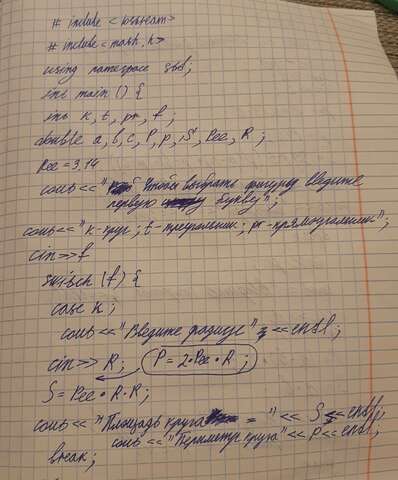 # include <iostream>
# include <math.h>
using namespace std;
int main () {
int k, t, pr, f;
double a, b, c, P, p, S, Pee, R;
Pee = 3.14
cout << "Чтобы выбрать фигуру введите
первую букву";
cout << "k-круг; t-треугольник; pr-прямоугольник";
cin >> f
switch (f) {
case k;
cout << "Введите радиус" << endl;
cin >> R; P = 2·Pee·R;
S = Pee · R · R;
cout << "Площадь круга = " << S << endl;
cout << "Периметр круга" << P << endl;
break;